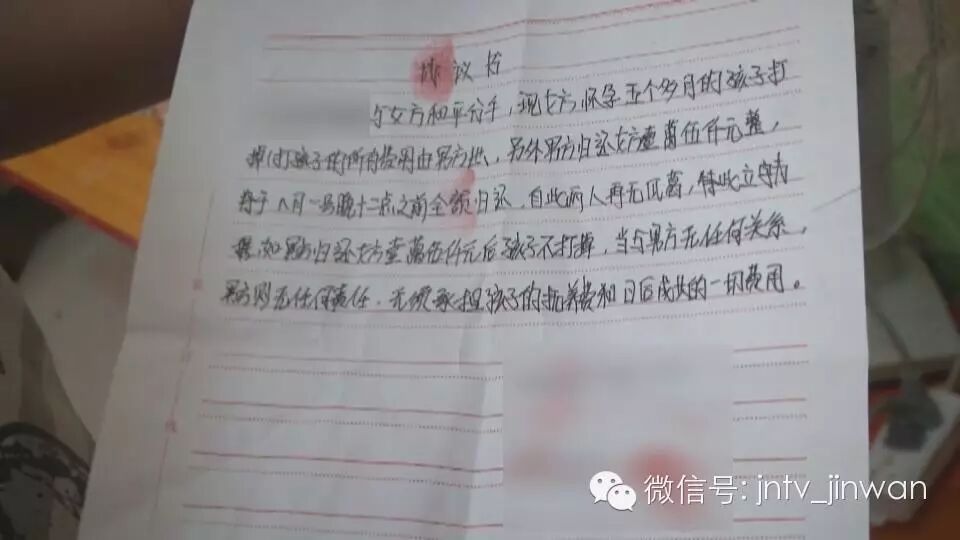 协议书
与女方和平分手，现女方怀孕五个多月的孩子打
掉（打孩子的所有费用由男方出，另外男方归还女方壹萬伍仟元整，
将于八月一号晚十二点之前全额归还，自此两人再无瓜葛，特此立字为
据，如男方归还女方壹萬伍仟元后孩子不打掉，当与男方无任何关系，
男方则无任何责任，无须承担孩子的抚养费和日后成长的一切费用。
微信号: jntv_jinwan